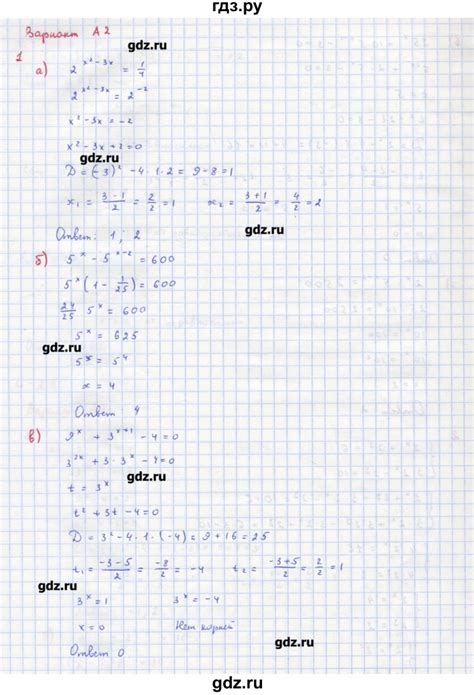 гдз.ру
Вариант А2
gdz.ru
1
а) 2^(x²-3x) = 1/4
2^(x²-3x) = 2^(-2)
x² - 3x = -2
x² - 3x + 2 = 0
gdz.ru
D = (-3)² - 4·1·2 = 9 - 8 = 1
x₁ = (3-1)/2 = 2/2 = 1 x₂ = (3+1)/2 = 4/2 = 2
gdz.ru
Ответ. 1; 2
б) 5^x - 5^(x-2) = 600
5^x (1 - 1/25) = 600
gdz.ru
24/25 · 5^x = 600
5^x = 625
gdz.ru
5^x = 5^4
x = 4
Ответ 4
gdz.ru
в) 9^x + 3^(x+1) - 4 = 0
3^(2x) + 3·3^x - 4 = 0
gdz.ru
t = 3^x
t² + 3t - 4 = 0
D = 3² - 4·1·(-4) = 9 + 16 = 25
t₁ = (-3-5)/2 = -8/2 = -4 t₂ = (-3+5)/2 = 2/2 = 1
gdz.ru
3^x = 1 3^x = -4
x = 0 Нет корней
Ответ 0
gdz.ru
gdz.ru